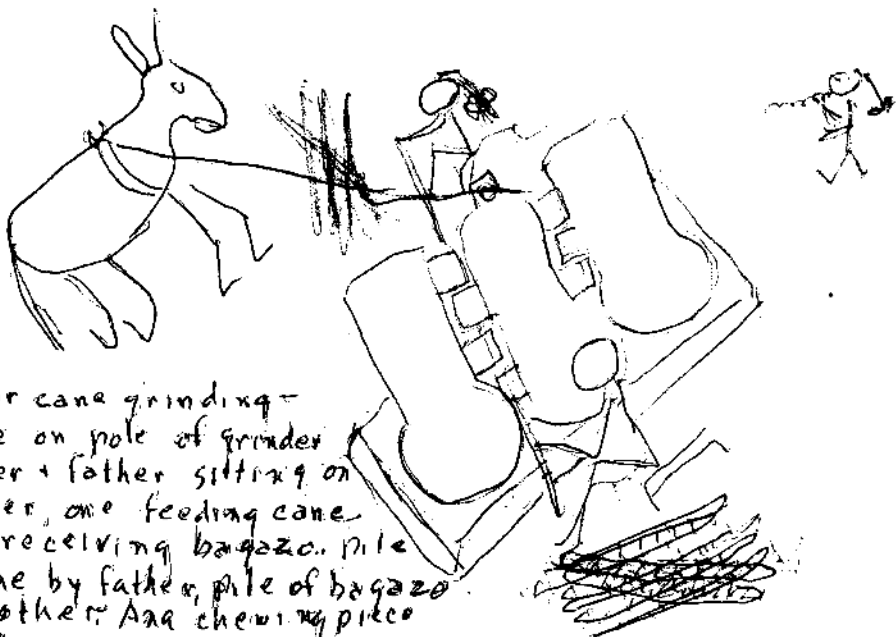 r cane grinding-
e on pole of grinder
er + father sitting on
er, one feeding cane
receiving bagazo. pile
ne by father, pile of bagazo
other. Ana chewing piece